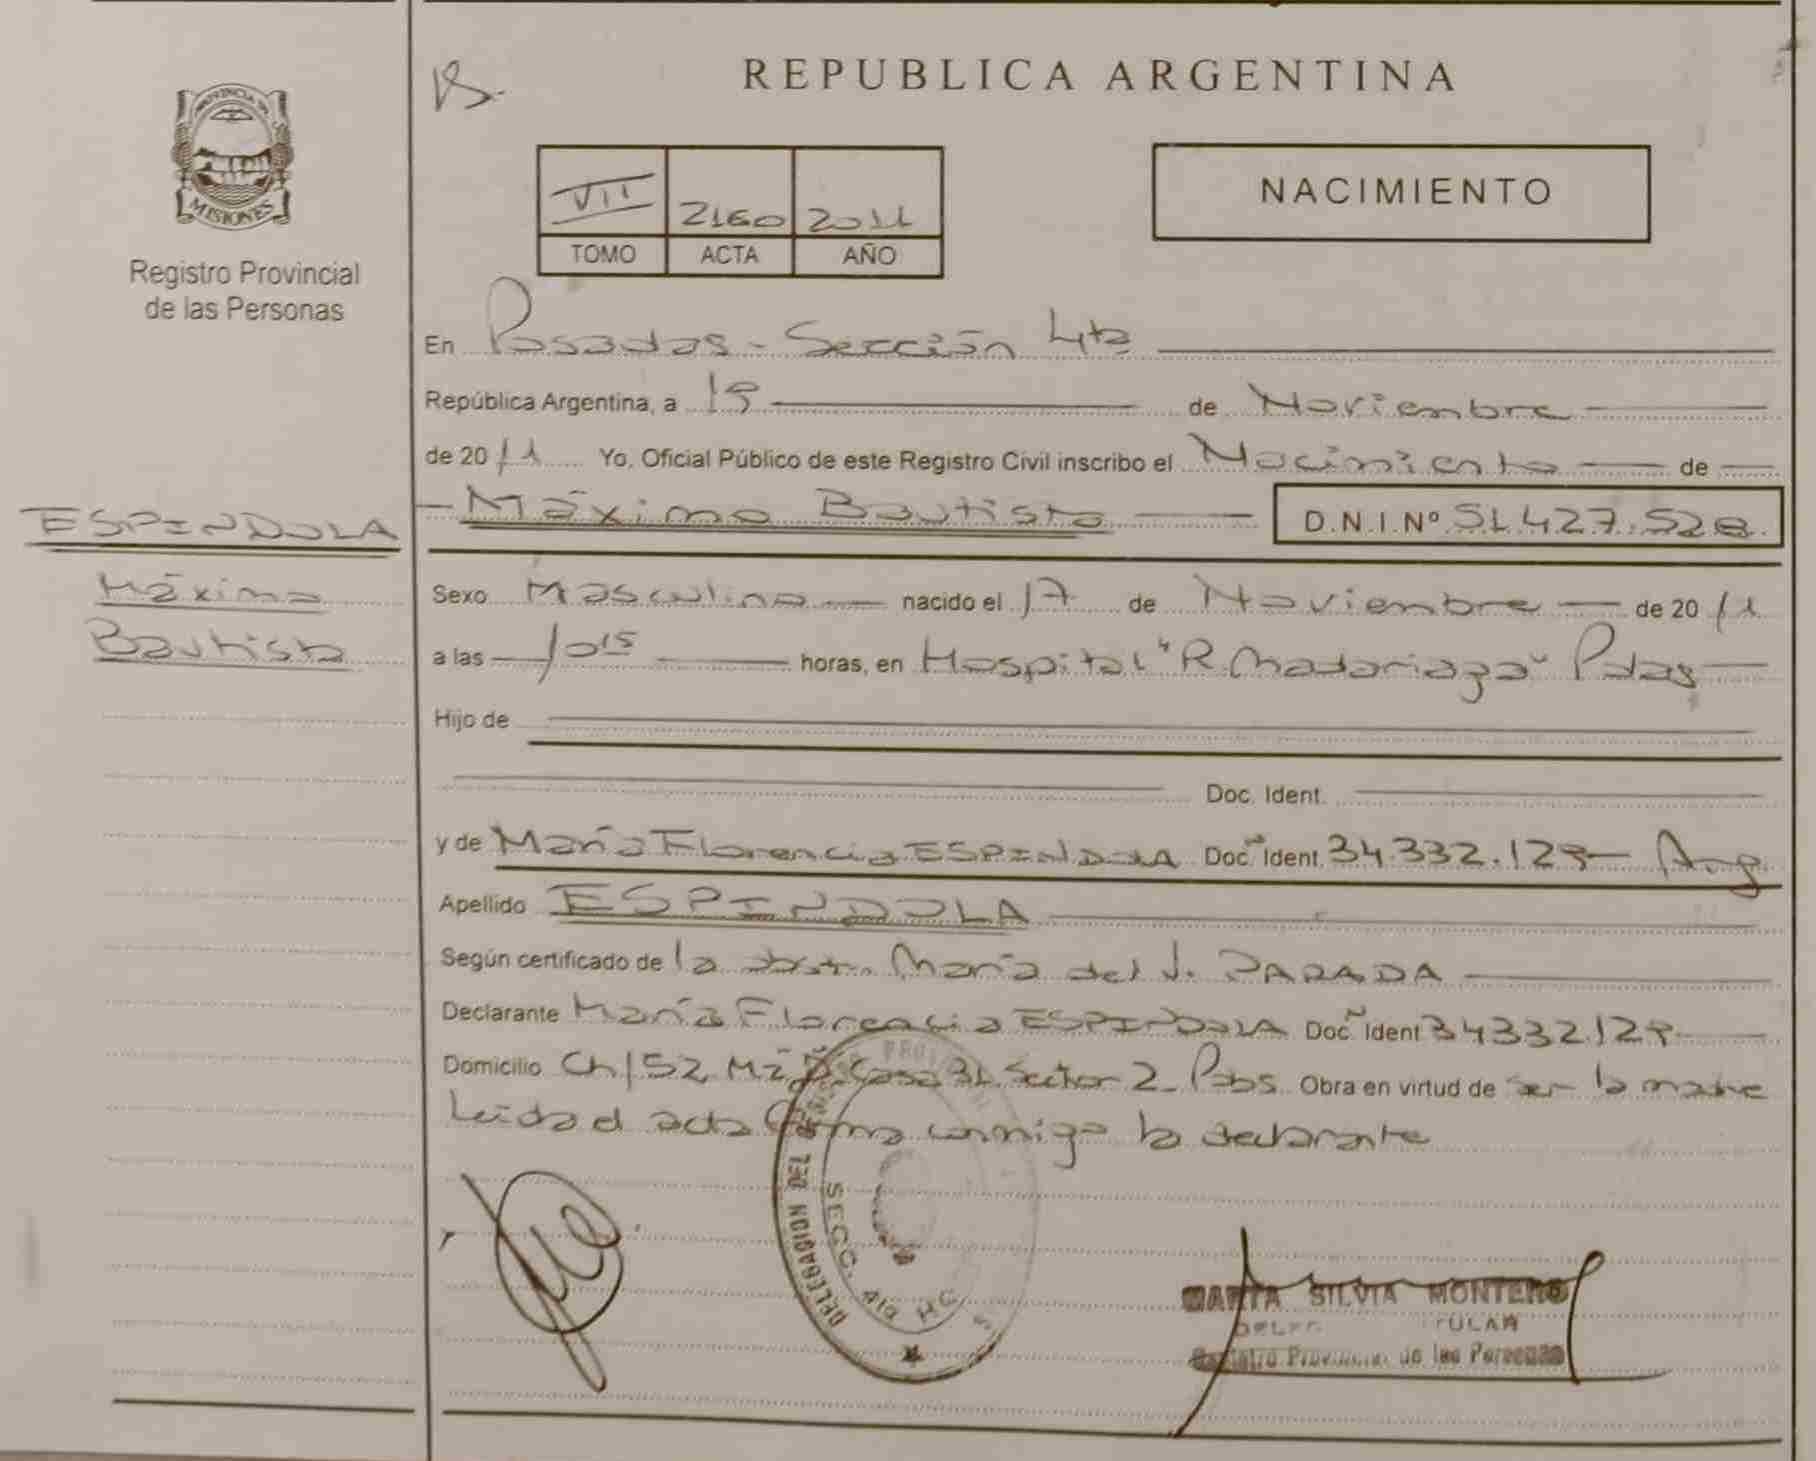 REPUBLICA ARGENTINA
PROVINCIA DE
MISIONES
Registro Provincial
de las Personas
VII 2160 2011
TOMO ACTA AÑO
NACIMIENTO
En Posadas - Sección 4ta
República Argentina, a 19 de Noviembre
de 2011 Yo, Oficial Público de este Registro Civil inscribo el Nacimiento de
Máximo Bautista D.N.I.Nº 51.427.528.
ESPINDOLA
Máximo
Bautista
Sexo Masculino nacido el 17 de Noviembre de 2011
a las 10 15 horas, en Hospital "R. Madariaga" Pdas
Hijo de
Doc. Ident.
y de María Florencia ESPINDOLA Doc. Ident. 34.332.129 Arg
Apellido ESPINDOLA
Según certificado de la obst. María del J. PARADA
Declarante María Florencia ESPINDOLA Doc. Ident 34332.129
Domicilio Ch 152 Mz Ñ Casa 31 Sector 2 Obra en virtud de ser la madre
Leída el acta firma conmigo la declarante
DELEGACION DEL
SECC. 4ta
MARTA SILVIA MONTERO
Registro Provincial de las Personas